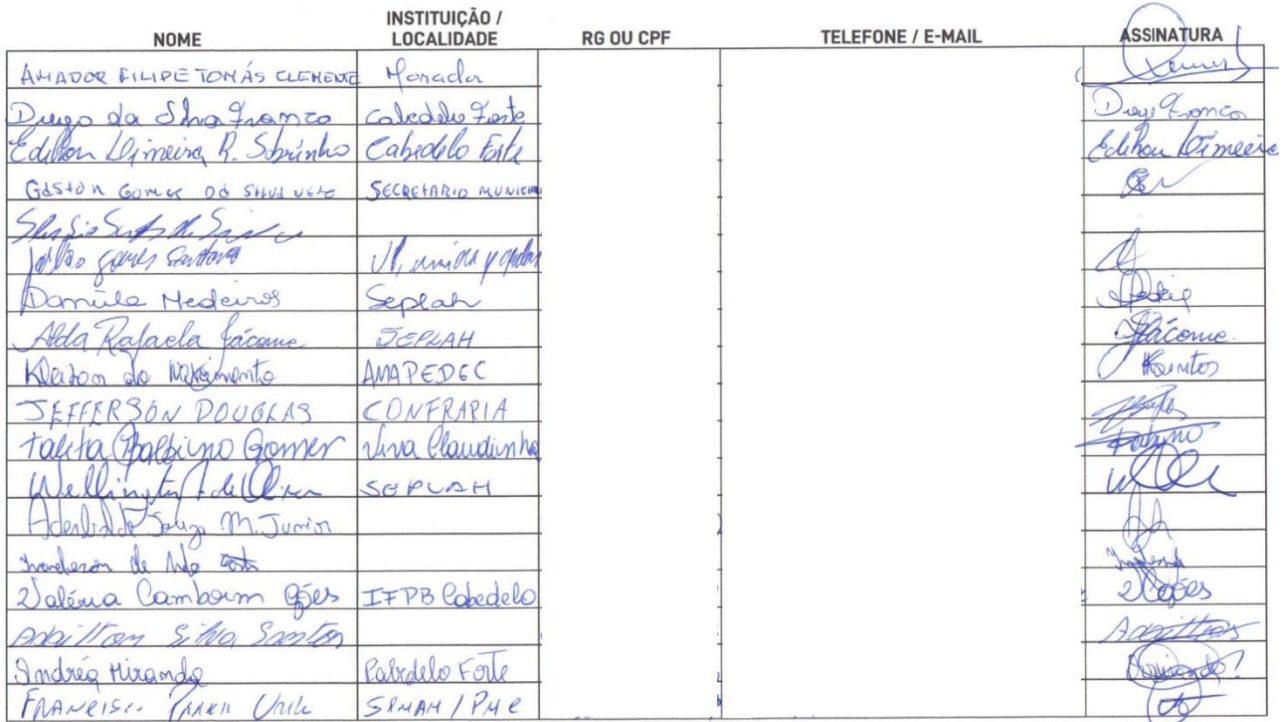 NOME INSTITUIÇÃO / LOCALIDADE RG OU CPF TELEFONE / E-MAIL ASSINATURA
AMADOR FILIPE TOMÁS CLEMENTE Morador
Diego da Silva Franco Cabedelo Forte Diego Franco
Edilson R. Sobrinho Cabedelo Forte Edilson
GASTON GOMES DA SILVA NETO SECRETARIO MUNICIPAL
Gomes Santana
Daniele Medeiros Seplah
Alda Rafaela Jácome SEPLAH Jácome
Kleiton do Nascimento AMAPEDEC
JEFFERSON DOUGLAS CONFRARIA
Talita Balbino Gomes Viva Claudinha Balbino
Wellington SEPLAH
Souza M. Junior
de
Valéria Camboim Góes IFPB Cabedelo VCGóes
Adailton Silva Santos Adailton
Andréa Miranda Cabedelo Forte
FRANCISCO SEMAH / PMC